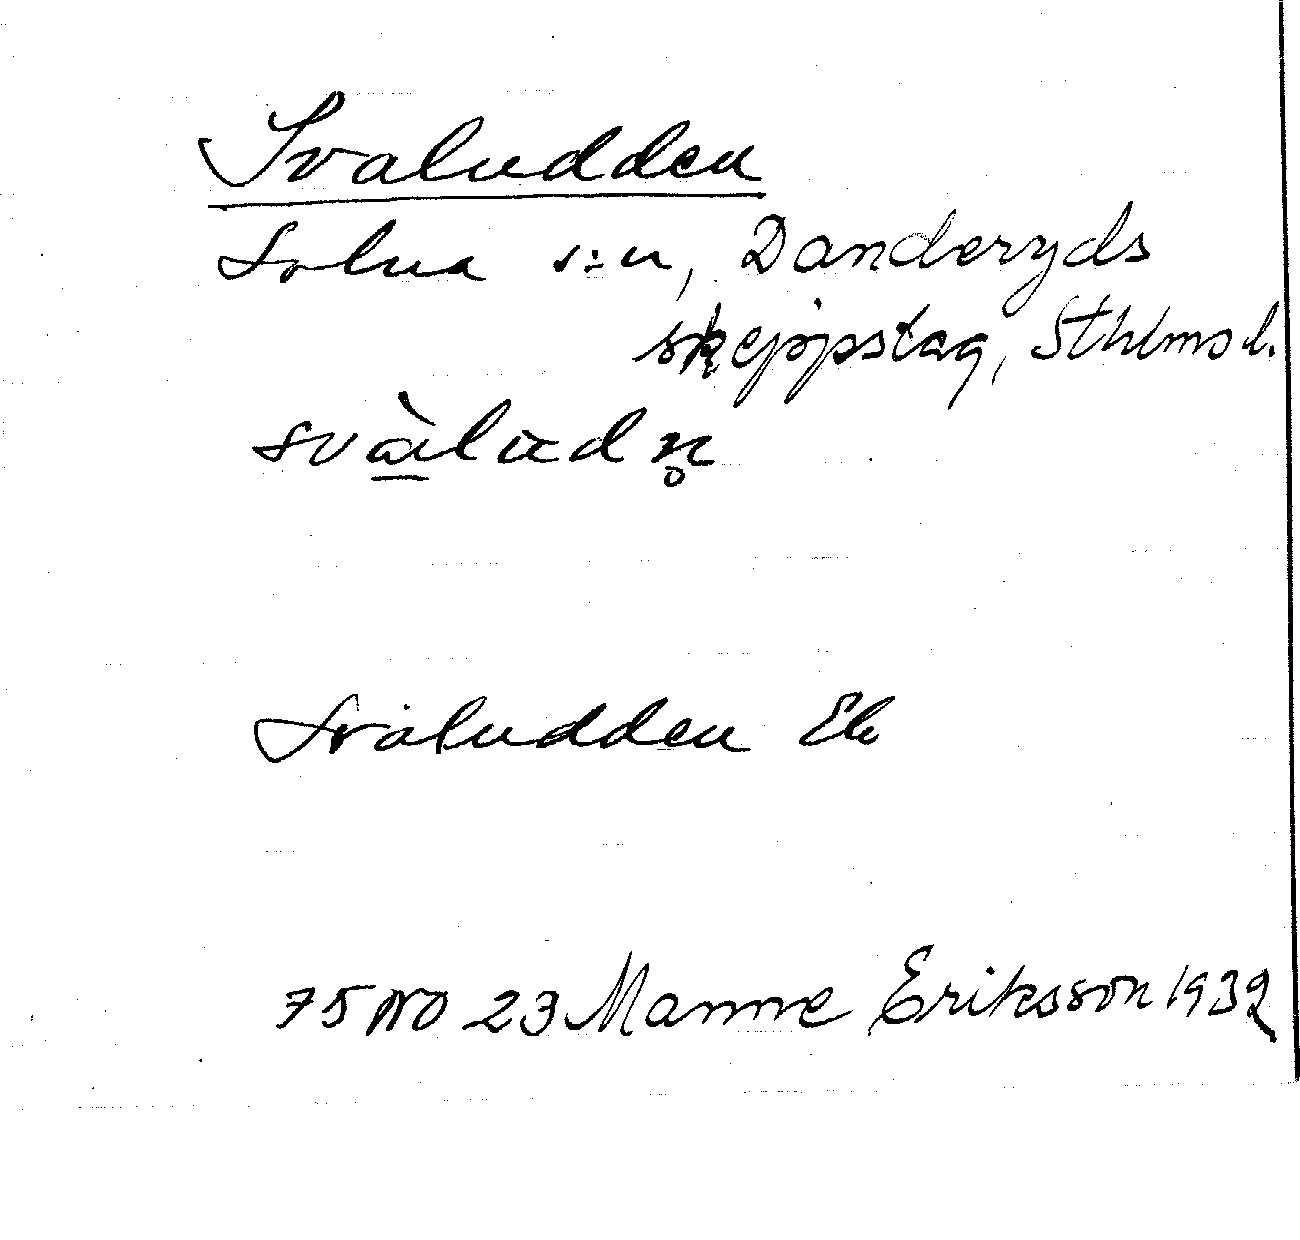 Svaludden
Solna s:n, Danderyds
skeppstag, Sthlms l.
svàludn̥
Svaludden Ek
75 NO 23 Manne Eriksson 1932